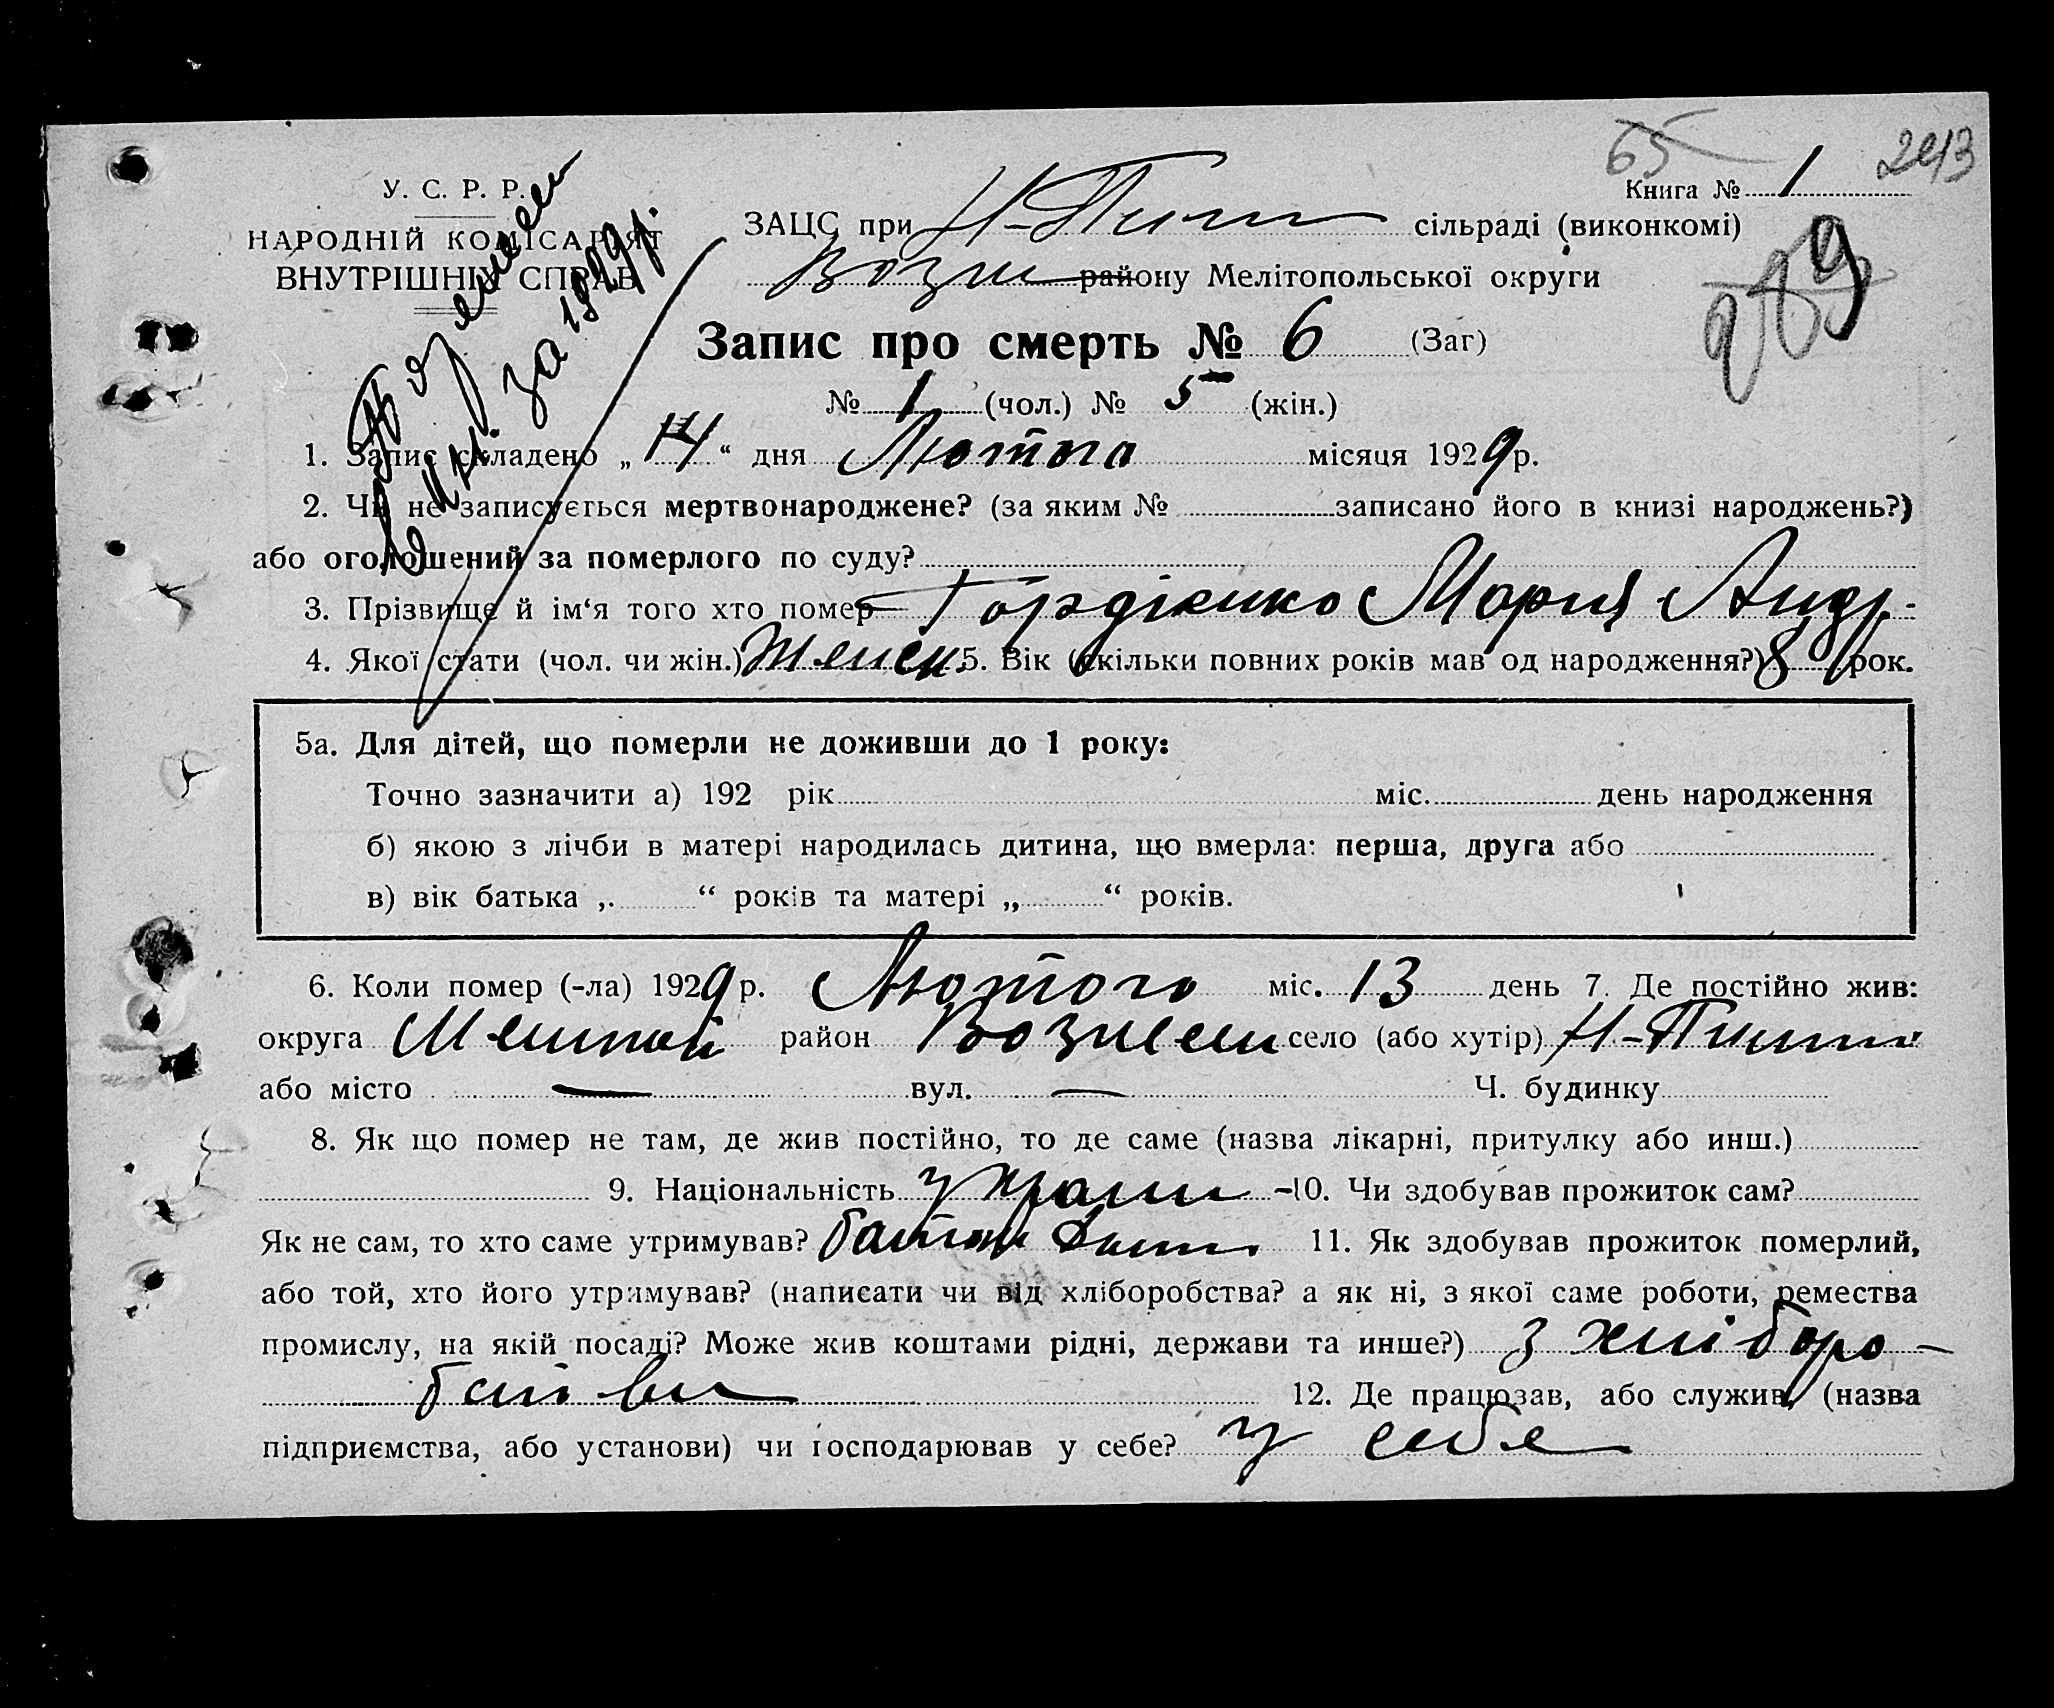 65 2913
У. С. Р. Р.
Книга № 1
НАРОДНІЙ КОМІСАРІЯТ
ВНУТРІШНІХ СПРАВ
ЗАЦС при сільраді (виконкомі)
району Мелітопольської округи
за 1929 р.
Запис про смерть № 6 (Заг)
№ 1 (чол.) № 5 (жін.)
1. Запис складено „ 14 “ дня Лютого місяця 1929 р.
2. Чи не записується мертвонароджене? (за яким № записано його в книзі народжень?)
або оголошений за померлого по суду?
3. Прізвище й ім‘я того хто помер Гордієнко Мария Андр.
4. Якої стати (чол. чи жін.) Женск. 5. Вік (скільки повних років мав од народження?) 8 рок.
5а. Для дітей, що померли не доживши до 1 року:
Точно зазначити а) 192 рік міс. день народження
б) якою з лічби в матері народилась дитина, що вмерла: перша, друга або
в) вік батька „ “ років та матері „ “ років.
6. Коли помер (-ла) 1929 р. Лютого міс. 13 день 7. Де постійно жив:
округа район Вознесен село (або хутір)
або місто — вул. — Ч. будинку
8. Як що помер не там, де жив постійно, то де саме (назва лікарні, притулку або инш.)
9. Національність 10. Чи здобував прожиток сам?
Як не сам, то хто саме утримував? 11. Як здобував прожиток померлий,
або той, хто його утримував? (написати чи від хліборобства? а як ні, з якої саме роботи, ремества
промислу, на якій посаді? Може жив коштами рідні, держави та инше?) з хліборо-
12. Де працював, або служив, (назва
підприємства, або установи) чи господарював у себе? у себе